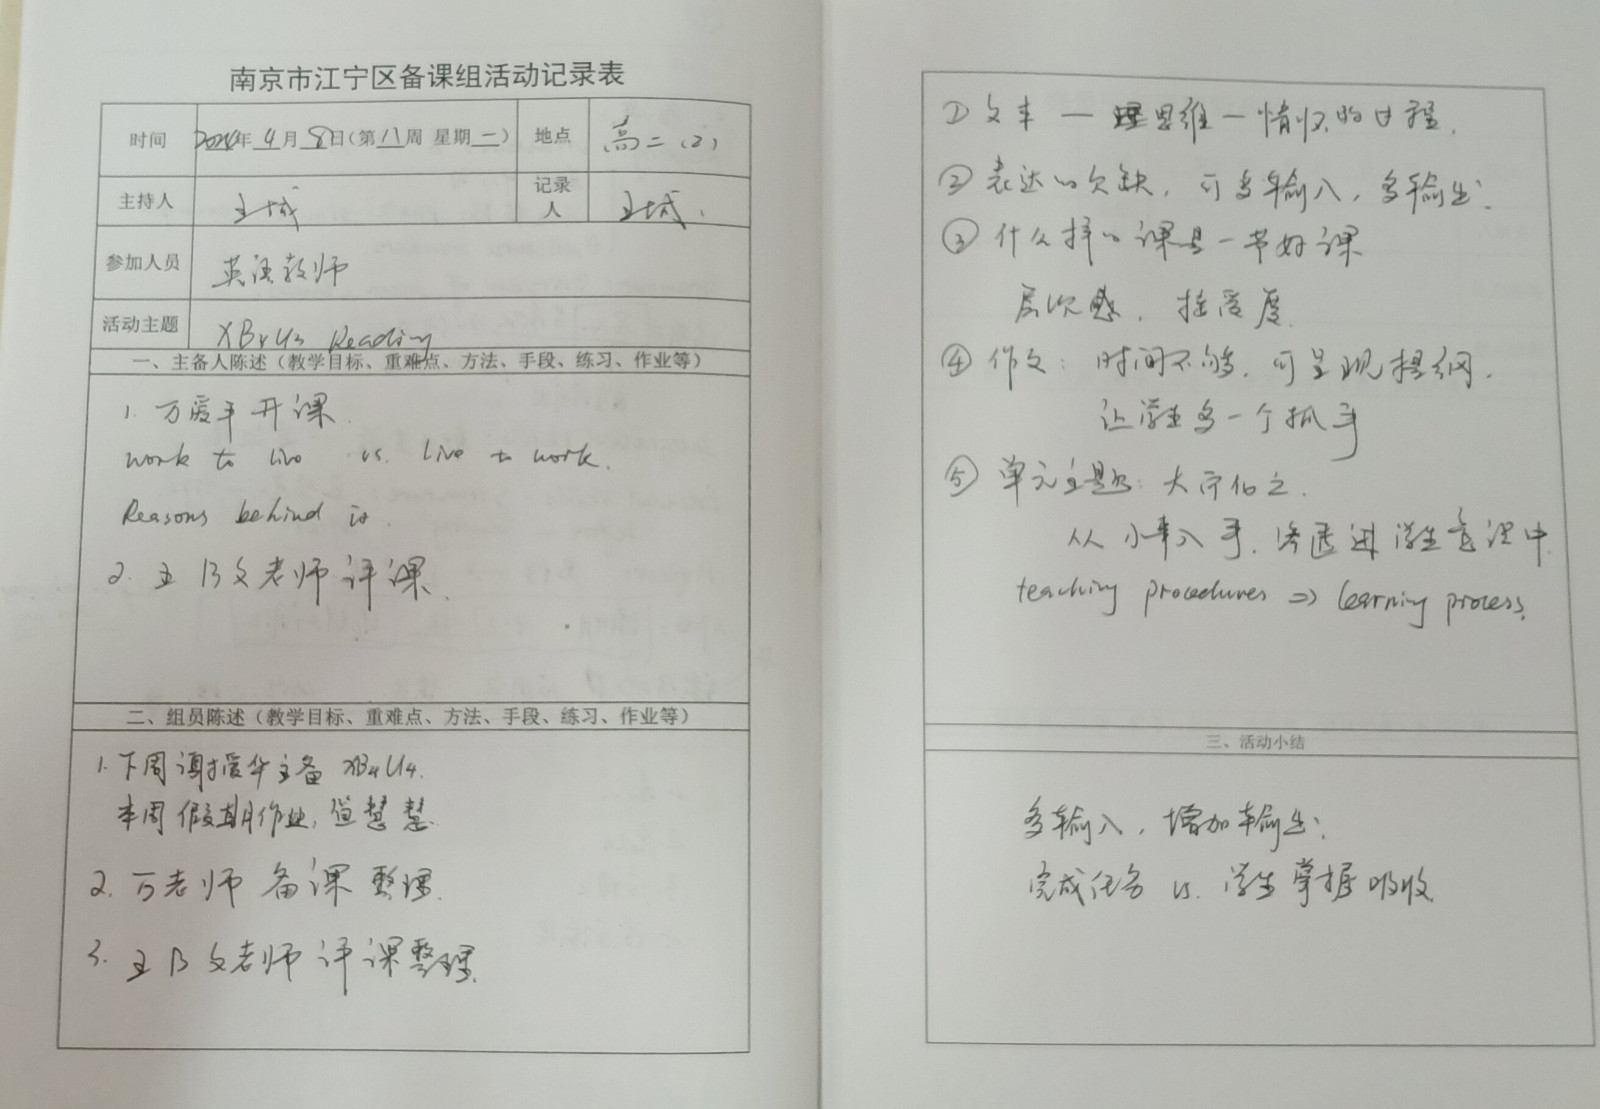 南京市江宁区备课组活动记录表
时间 2024年4月8日(第八周 星期一) 地点 高二(2)
主持人 王城 记录人 王城
参加人员 英语教师
活动主题 XB4U3 Reading
一、主备人陈述（教学目标、重难点、方法、手段、练习、作业等）
1. 万爱平开课.
work to live vs. live to work.
Reasons behind it.
2. 王 文老师评课.
二、组员陈述（教学目标、重难点、方法、手段、练习、作业等）
1. 下周谢援华主备 XB4U4.
本周假期作业, 慧慧.
2. 万老师备课整理.
3. 王 文老师评课整理.
① 文本 — 思维 — 情怀的过程.
② 表达的欠缺, 可多输入, 多输出;
③ 什么样的课是一节好课
层次感, 接受度.
④ 作文: 时间不够, 可呈现提纲,
让学生多一个抓手
⑤ 单元主题: 大而化之.
从小事入手, 渗透进学生意识中
teaching procedures => learning process.
三、活动小结
多输入, 增加输出;
完成任务 vs. 学生掌握吸收